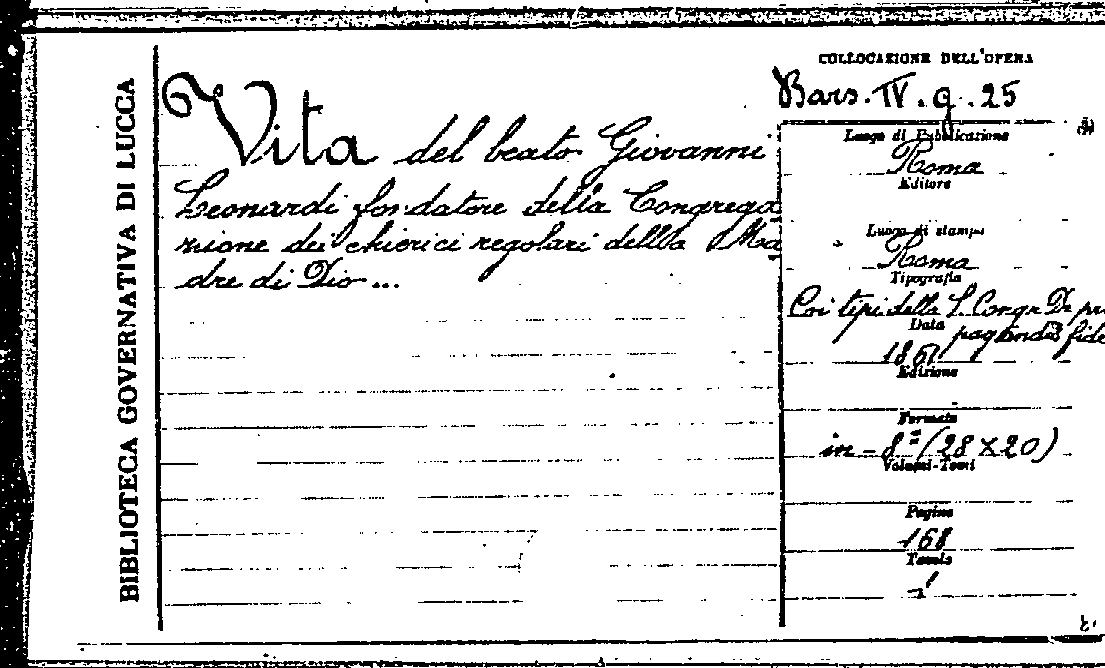 BIBLIOTECA GOVERNATIVA DI LUCCA
Vita del beato Giovanni
Leonardi fondatore della Congrega
zione dei chierici regolari dellla Ma
dre di Dio...
COLLOCAZIONE DELL'OPERA
Bars. IV. g. 25
Luogo di Pubblicazione
Roma
Editore
Luogo di stampa
Roma
Tipografia
Coi tipi della S. Congr. De pr
Data
paganda fide
1861
Edizione
Formato
in-8º (28 X 20)
Volumi-Tomi
Pagine
168
Tavole
1